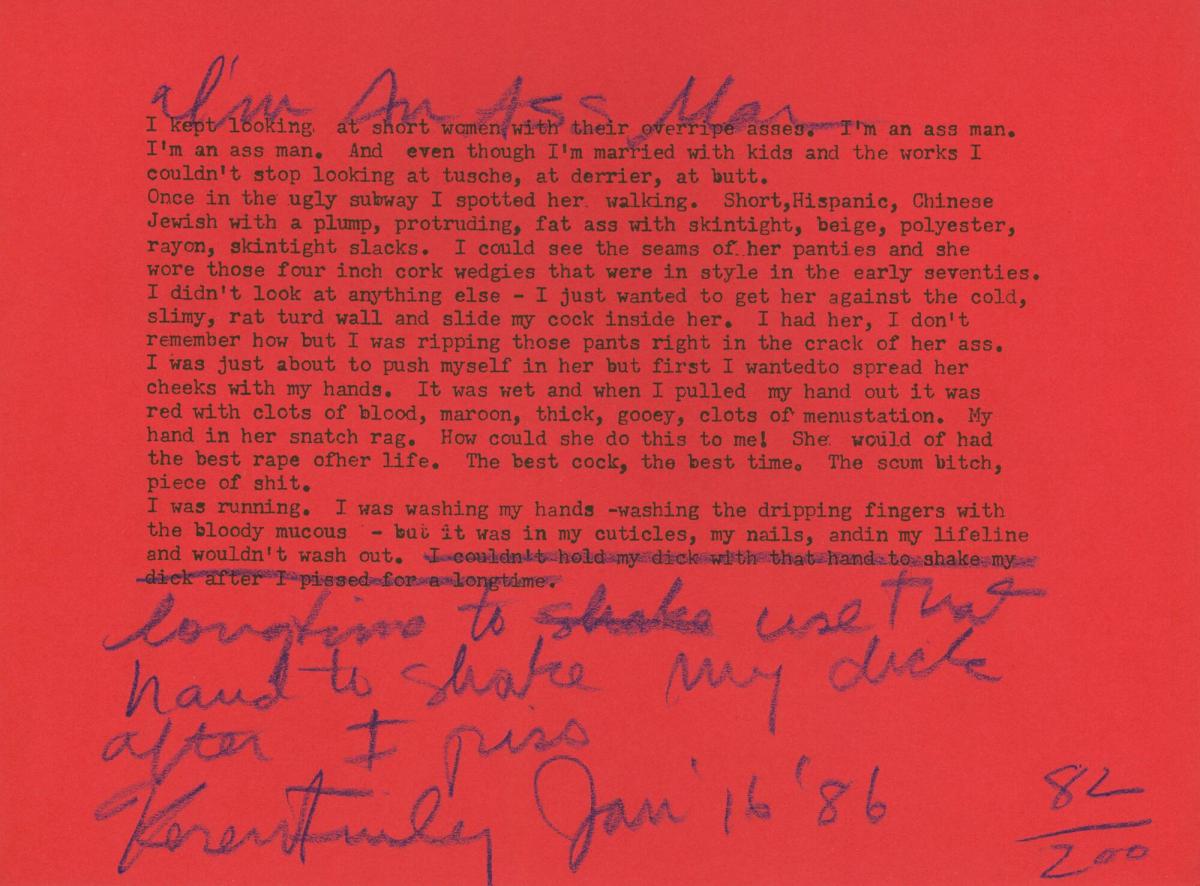 I'm An Ass Man
I kept looking at short women with their overripe asses. I'm an ass man.
I'm an ass man. And even though I'm married with kids and the works I
couldn't stop looking at tusche, at derrier, at butt.
Once in the ugly subway I spotted her walking. Short,Hispanic, Chinese
Jewish with a plump, protruding, fat ass with skintight, beige, polyester,
rayon, skintight slacks. I could see the seams of her panties and she
wore those four inch cork wedgies that were in style in the early seventies.
I didn't look at anything else - I just wanted to get her against the cold,
slimy, rat turd wall and slide my cock inside her. I had her, I don't
remember how but I was ripping those pants right in the crack of her ass.
I was just about to push myself in her but first I wantedto spread her
cheeks with my hands. It was wet and when I pulled my hand out it was
red with clots of blood, maroon, thick, gooey, clots of menustation. My
hand in her snatch rag. How could she do this to me! She would of had
the best rape ofher life. The best cock, the best time. The scum bitch,
piece of shit.
I was running. I was washing my hands -washing the dripping fingers with
the bloody mucous - but it was in my cuticles, my nails, andin my lifeline
and wouldn't wash out. I couldn't hold my dick with that hand to shake my
dick after I pissed for a longtime.
longtime to shake use that
hand to shake my dick
after I piss
Karen Finley Jan 16 '86
82
200